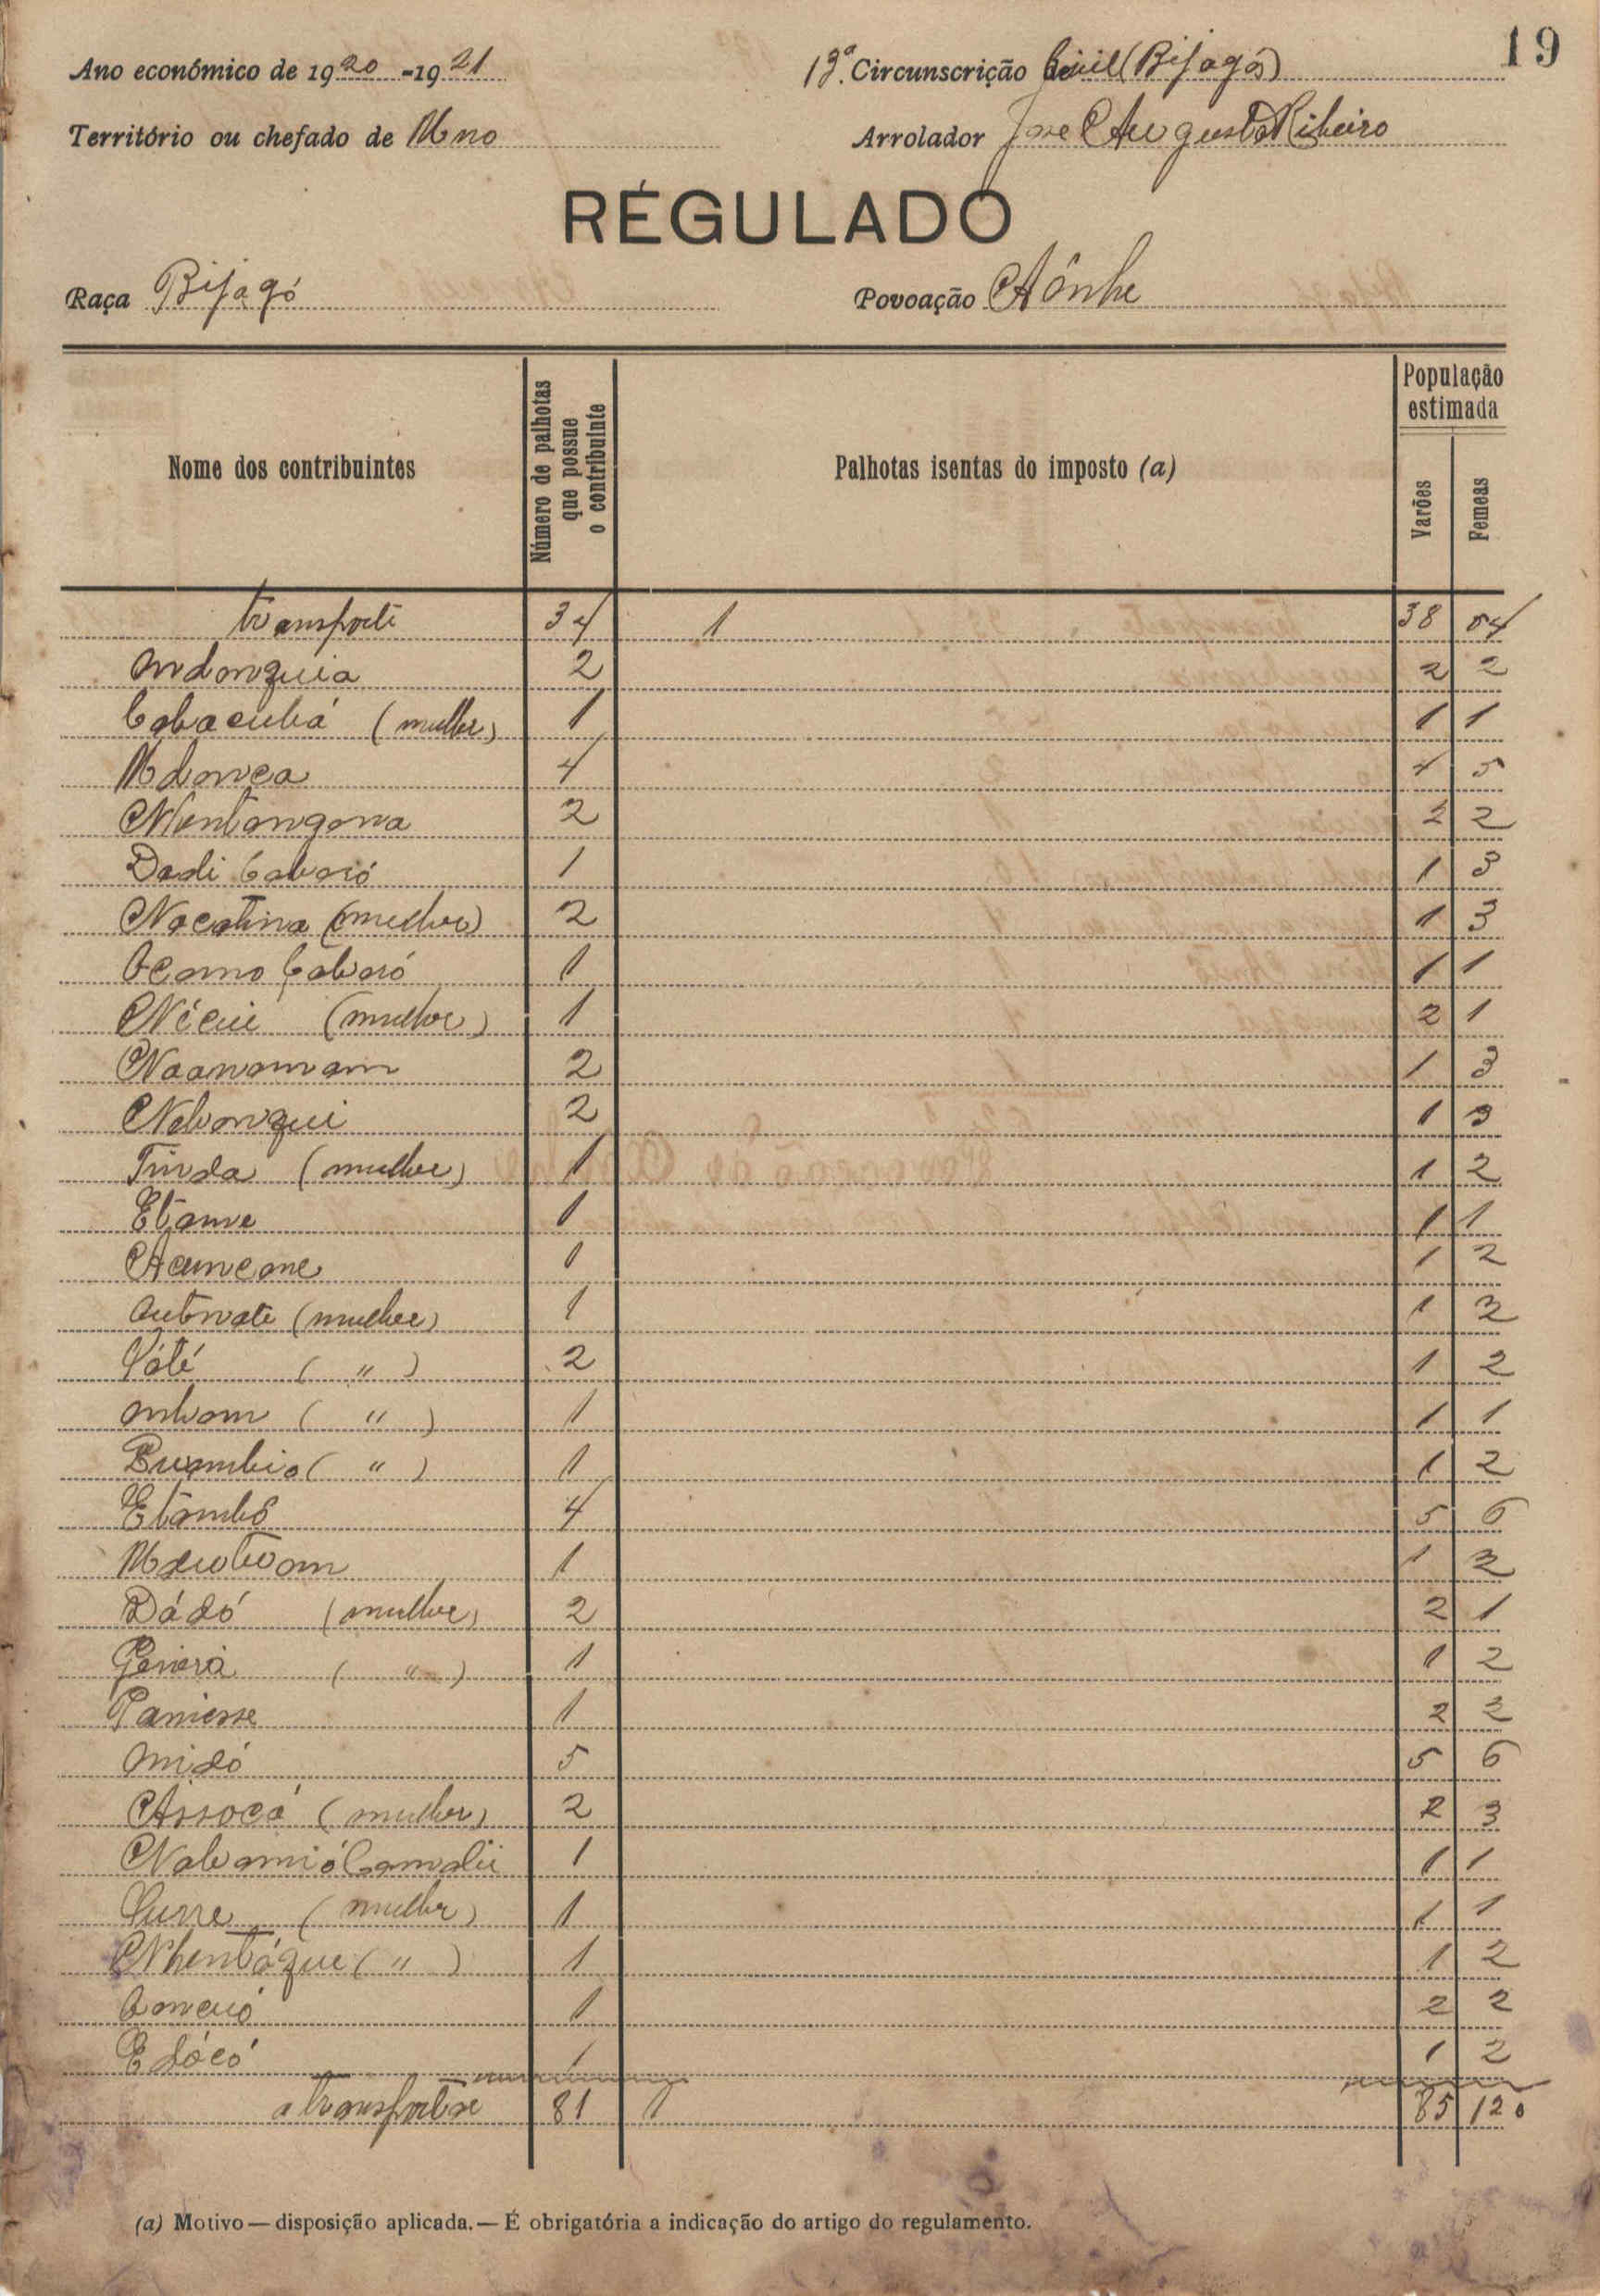 19
Ano económico de 1920-1921
13ª Circunscrição Civil (Bijagós)
Território ou chefado de Uno
Arrolador José Augusto Ribeiro
RÉGULADO
Raça Bijagó
Povoação Aônhe
Nome dos contribuintes
Número de palhotas que possue o contribuinte
Palhotas isentas do imposto (a)
População estimada
Varões
Femeas
transporte 34 1 38 54
Ondonguia 2 2 2
Cabacubá (mulher) 1 1 1
Mdonca 4 4 5
Nentongona 2 2 2
Dadi Caboró 1 1 3
Nocotina (mulher) 2 1 3
Ocomo Caboró 1 1 1
Nécui (mulher) 1 2 1
Noanomam 2 1 3
Nebongui 2 1 3
Tinda (mulher) 1 1 2
Etome 1 1 1
Acuncane 1 1 2
(mulher) 1 1 2
Cóté ( " ) 2 1 2
Ombom ( " ) 1 1 1
( " ) 1 1 2
Etombó 4 5 6
1 1 2
Dádó (mulher) 2 2 1
( " ) 1 1 2
Paniesse 1 2 2
Onidó 5 5 6
Assocá (mulher) 2 2 3
1 1 1
Curre (mulher) 1 1 1
Nhentóque ( " ) 1 1 2
Conció 1 2 2
Edócó 1 1 2
a transportar 81 1 85 120
(a) Motivo — disposição aplicada. — É obrigatória a indicação do artigo do regulamento.